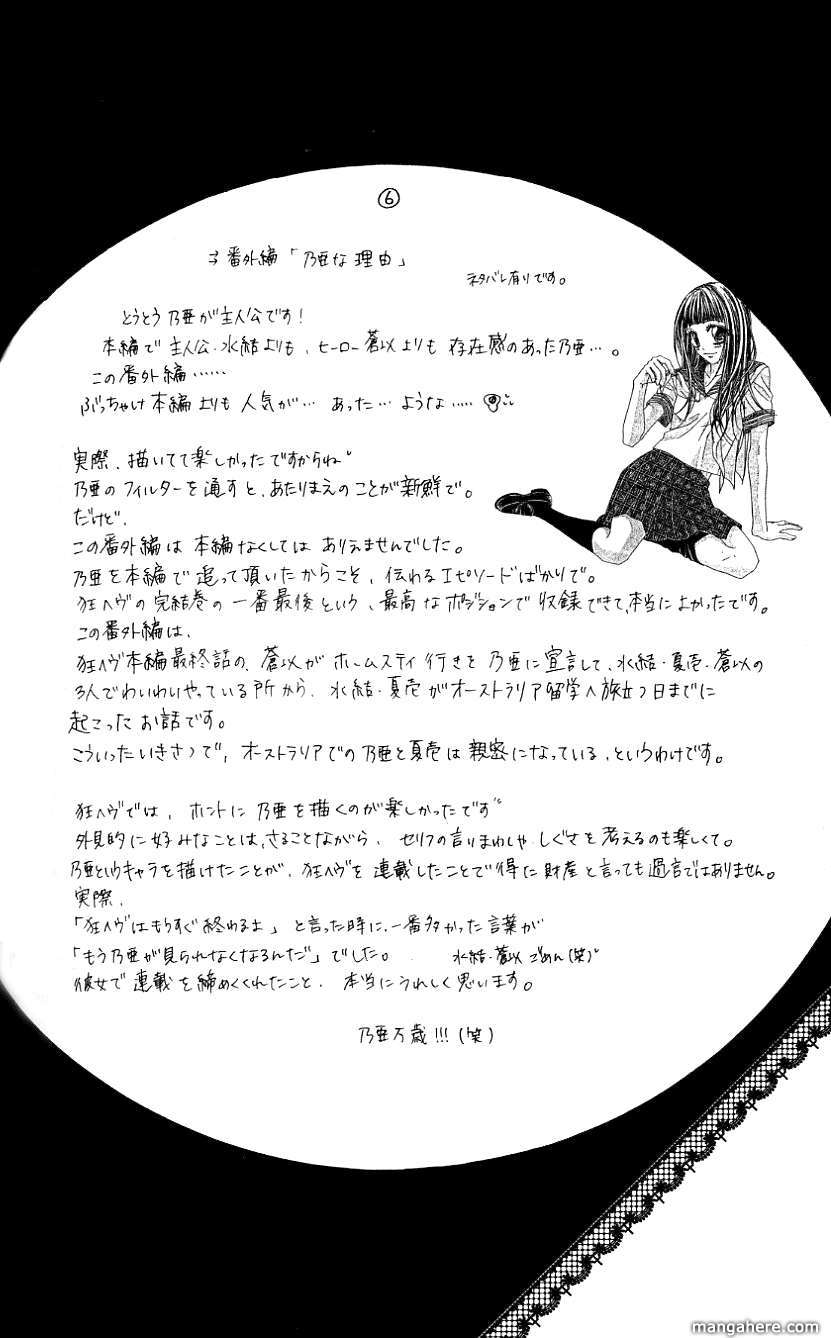 ⑥
番外編「乃亜な理由」
ネタバレ有りです。
とうとう乃亜が主人公です！
本編で主人公・水結よりも、ヒーロー蒼以よりも存在感のあった乃亜…。
この番外編……
ぶっちゃけ本編よりも人気が…あった…ような……
実際、描いてて楽しかったですからね。
乃亜のフィルターを通すと、あたりまえのことが新鮮で。
だけど、
この番外編は本編なくしてはありえませんでした。
乃亜を本編で追って頂いたからこそ、伝わるエピソードばかりで。
狂ヘヴの完結巻の一番最後という、最高なポジションで収録できて、本当によかったです。
この番外編は、
狂ヘヴ本編最終話の、蒼以がホームステイ行きを乃亜に宣言して、水結・夏壱・蒼以の
3人でわいわいやっている所から、水結・夏壱がオーストラリア留学へ旅立つ日までに
起こったお話です。
こういったいきさつで、オーストラリアでの乃亜と夏壱は親密になっている、というわけです。
狂ヘヴでは、ホントに乃亜を描くのが楽しかったです。
外見的に好みなことは、さることながら、セリフの言いまわしやしぐさを考えるのも楽しくて。
乃亜というキャラを描けたことが、狂ヘヴを連載したことで得た財産と言っても過言ではありません。
実際、
「狂ヘヴはもうすぐ終わるよ」と言った時に、一番多かった言葉が
「もう乃亜が見られなくなるんだ」でした。 水結・蒼以ごめん(笑)。
彼女で連載を締めくくれたこと、本当にうれしく思います。
乃亜万歳!!!(笑)
mangahere.com